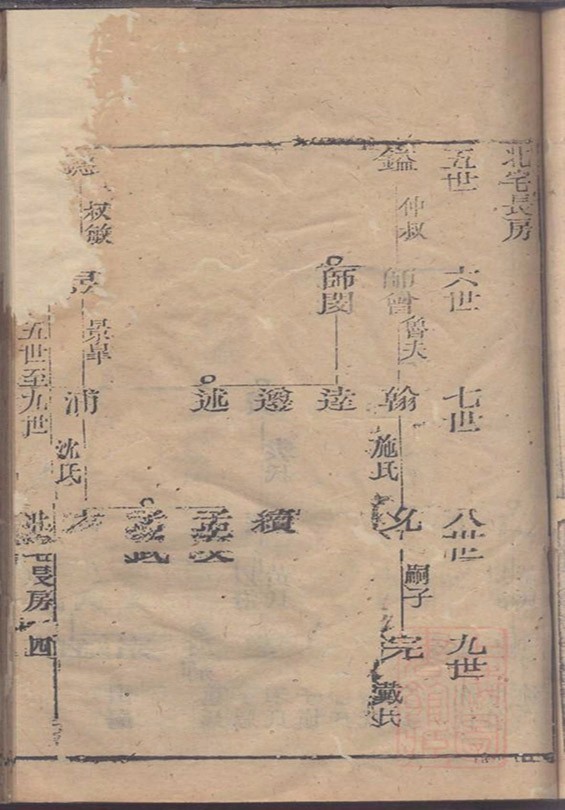 北宅長房
五世
六世
七世
八世
九世
鎰
仲叔
師曾
魯夫
翰
施氏
嗣子
完
戴氏
師閔
達
遵
續
述
叔敏
景皐
浦
沈氏
五世至九世
長房
四